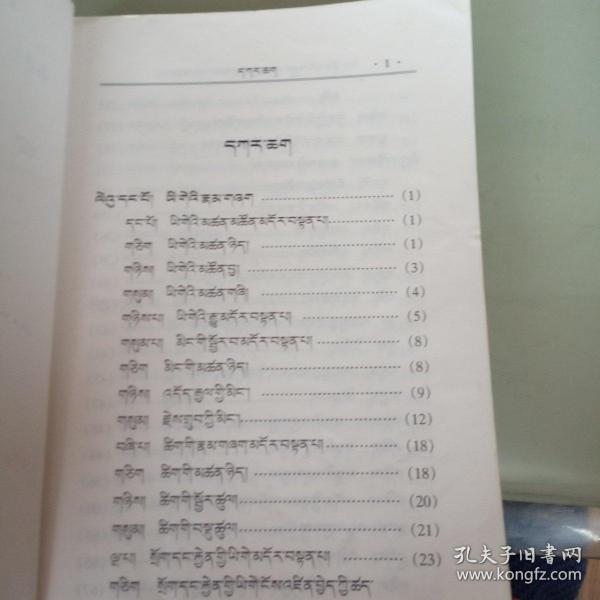 དཀར་ཆག · 1 ·
དཀར་ཆག
ལེའུ་དང་པོ། ཡི་གེའི་རྣམ་གཞག ·················· (1)
དང་པོ། ཡི་གེའི་མཚན་མཚོན་མདོར་བསྟན་པ། ·················· (1)
གཅིག ཡི་གེའི་མཚན་ཉིད། ·················· (1)
གཉིས། ཡི་གེའི་མཚོན་བྱ། ·················· (3)
གསུམ། ཡི་གེའི་མཚན་གཞི། ·················· (4)
གཉིས་པ། ཡི་གེའི་རྒྱུ་མདོར་བསྟན་པ། ·················· (5)
གསུམ་པ། མིང་གི་སྦྱོར་བ་མདོར་བསྟན་པ། ·················· (8)
གཅིག མིང་གི་མཚན་ཉིད། ·················· (8)
གཉིས། འདོད་རྒྱལ་གྱི་མིང་། ·················· (9)
གསུམ། རྗེས་གྲུབ་ཀྱི་མིང་། ·················· (12)
བཞི་པ། ཚིག་གི་རྣམ་གཞག་མདོར་བསྟན་པ། ·················· (18)
གཅིག ཚིག་གི་མཚན་ཉིད། ·················· (18)
གཉིས། ཚིག་གི་སྦྱོར་ཚུལ། ·················· (20)
གསུམ། ཚིག་གི་བསྡུ་ཚུལ། ·················· (21)
ལྔ་པ། སྲོག་དང་རྐྱེན་གྱི་ཡི་གེ་མདོར་བསྟན་པ། ·················· (23)
གཅིག སྲོག་དང་རྐྱེན་གྱི་ཡི་གེ་ངོས་འཛིན་བྱེད་ཀྱི་ཚད་
孔夫子旧书网
www.kongfz.com